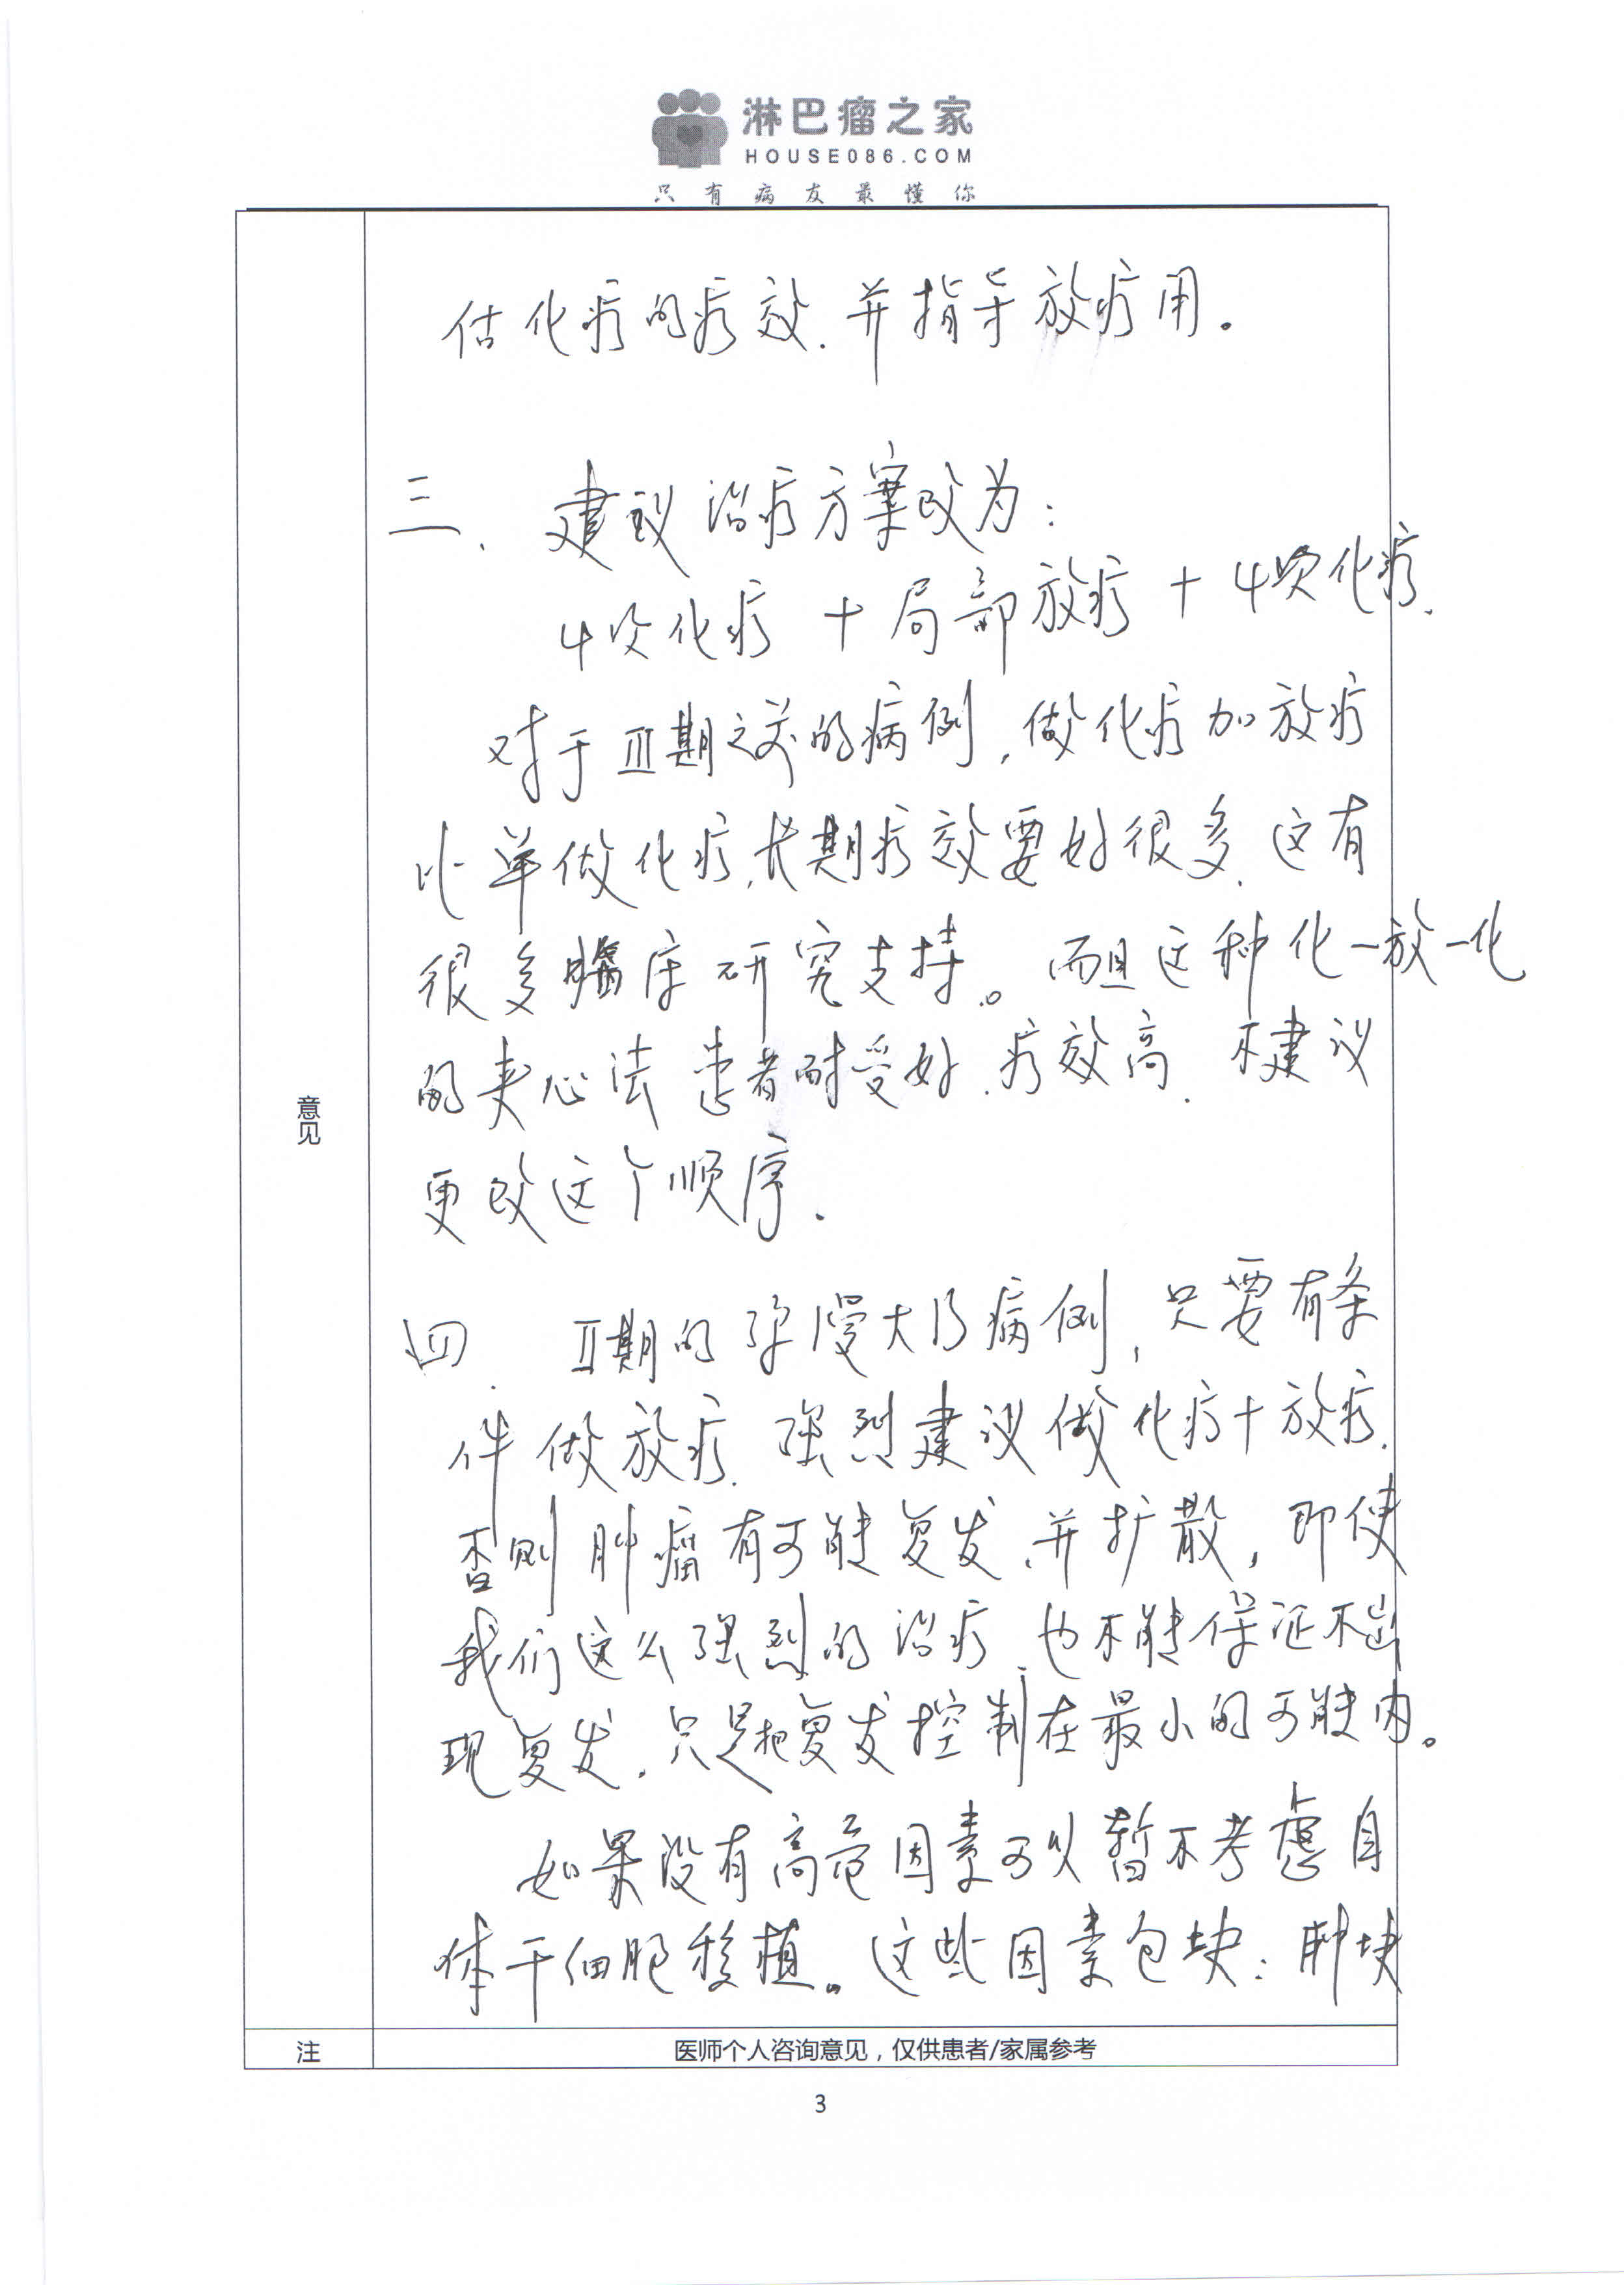 淋巴瘤之家
HOUSE086.COM
只有病友最懂你
估化疗的疗效.并指导放疗用。
三.建议治疗方案改为:
4次化疗+局部放疗+4次化疗.
对于III期之前的病例,做化疗加放疗
比单做化疗,长期疗效要好很多.这有
很多临床研究支持。而且这种化-放-化
的夹心法患者耐受好.疗效高.不建议
更改这个顺序.
四.II期的弥漫大B病例,只要有条
件做放疗.强烈建议做化疗+放疗.
否则肿瘤有可能复发.并扩散,即使
我们这么强烈的治疗.也不能保证不出
现复发.只是把复发控制在最小的可能内。
如果没有高危因素可以暂不考虑自
体干细胞移植。这些因素包块:肿块
意见
注
医师个人咨询意见,仅供患者/家属参考
3